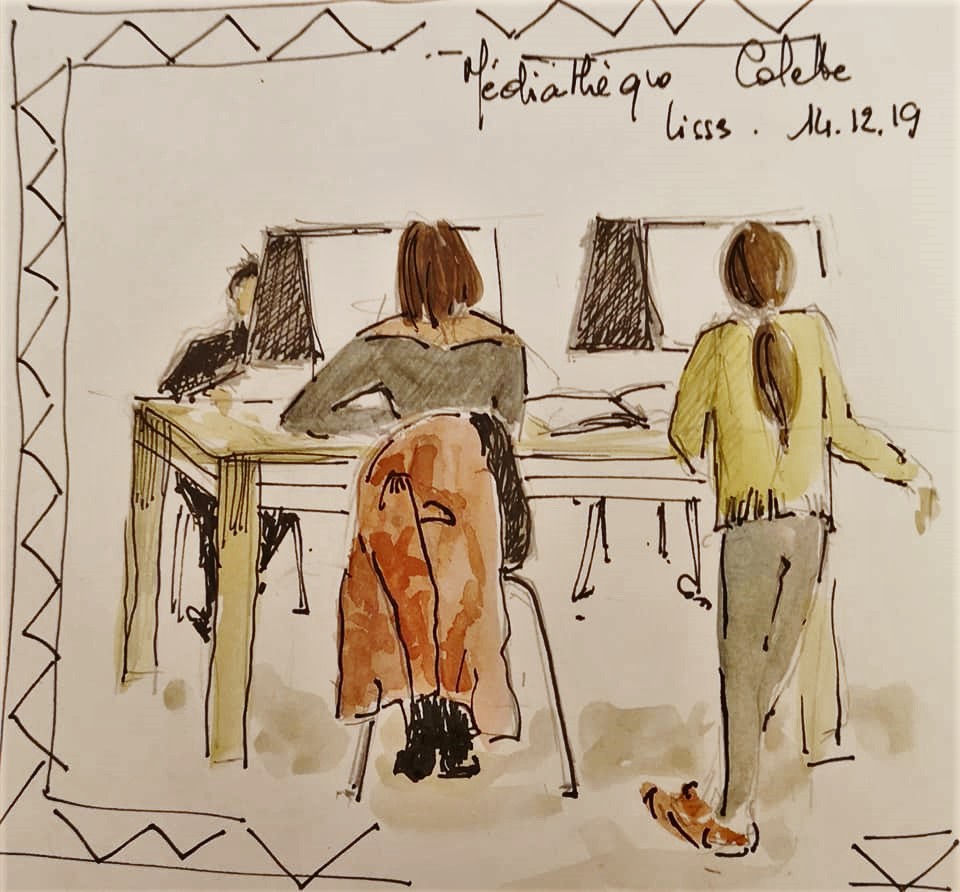 Médiathèque Colette
Lisses. 14.12.19